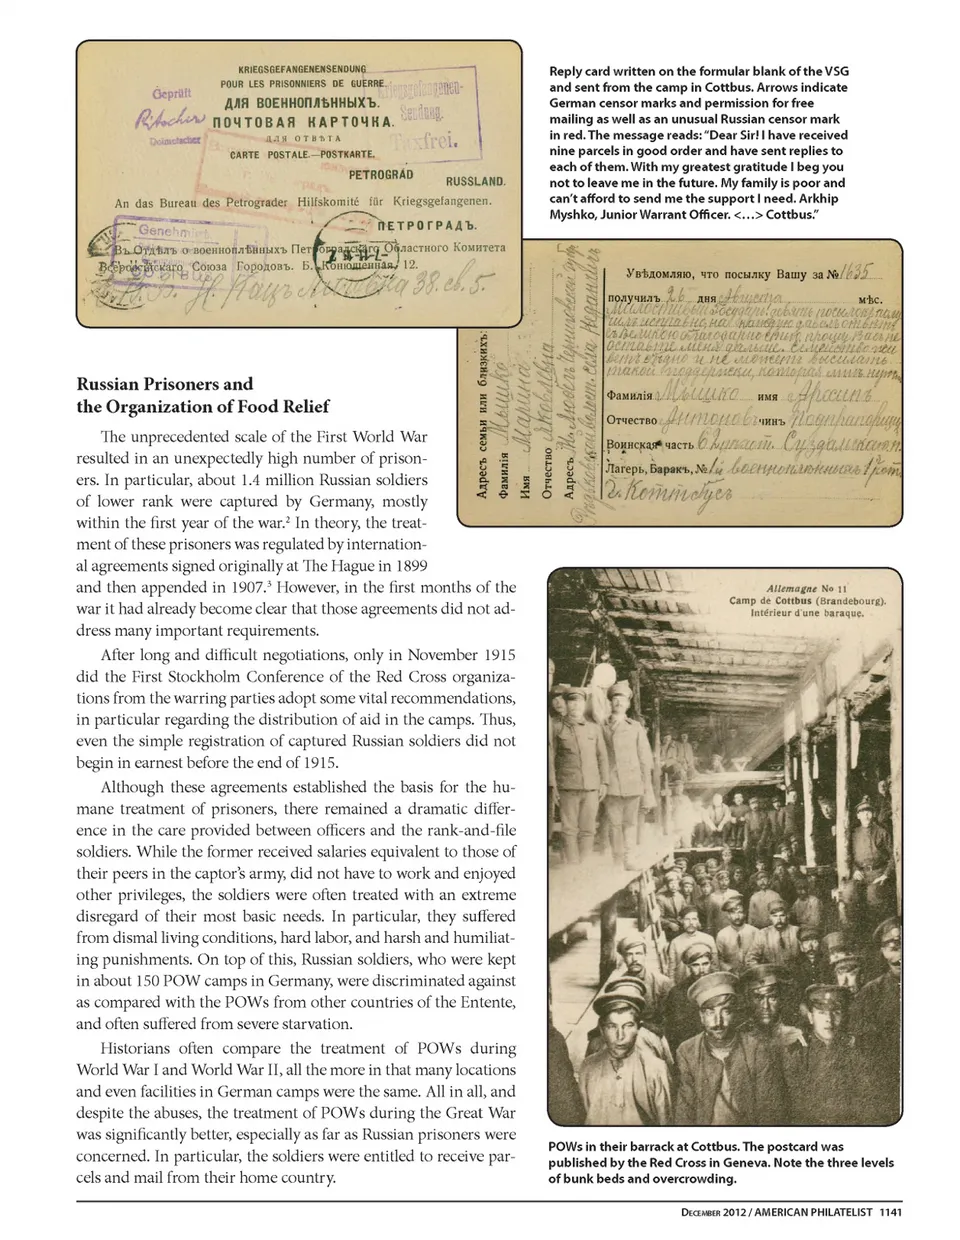 KRIEGSGEFANGENENSENDUNG
POUR LES PRISONNIERS DE GUERRE
ДЛЯ ВОЕННОПЛѢННЫХЪ.
ПОЧТОВАЯ КАРТОЧКА.
ДЛЯ ОТВѢТА
CARTE POSTALE.—POSTKARTE.
PETROGRAD
RUSSLAND.
An das Bureau des Petrograder Hilfskomité für Kriegsgefangenen.
ПЕТРОГРАДЪ.
Въ Отдѣлъ о военноплѣнныхъ Петроградскаго Областного Комитета
Всероссійскаго Союза Городовъ. Б. Конюшенная, 12.
Geprüft
Dolmetscher
Kriegsgefangenen-
Sendung.
Taxfrei.
Genehmigt
38. св. 5.
Reply card written on the formular blank of the VSG
and sent from the camp in Cottbus. Arrows indicate
German censor marks and permission for free
mailing as well as an unusual Russian censor mark
in red. The message reads: “Dear Sir! I have received
nine parcels in good order and have sent replies to
each of them. With my greatest gratitude I beg you
not to leave me in the future. My family is poor and
can’t afford to send me the support I need. Arkhip
Myshko, Junior Warrant Officer. <…> Cottbus.”
Увѣдомляю, что посылку Вашу за № 1635
получилъ 26 дня Августа мѣс.
Фамилія Мышко имя
Отчество Антоновъ чинъ
Воинская часть
Лагерь, Баракъ, №
г. Коттбусъ
Адресъ семьи или близкихъ:
Фамилія Мышко
Имя Марина
Отчество Яковлевна
Адресъ
Russian Prisoners and
the Organization of Food Relief
The unprecedented scale of the First World War
resulted in an unexpectedly high number of prison-
ers. In particular, about 1.4 million Russian soldiers
of lower rank were captured by Germany, mostly
within the first year of the war.² In theory, the treat-
ment of these prisoners was regulated by internation-
al agreements signed originally at The Hague in 1899
and then appended in 1907.³ However, in the first months of the
war it had already become clear that those agreements did not ad-
dress many important requirements.
After long and difficult negotiations, only in November 1915
did the First Stockholm Conference of the Red Cross organiza-
tions from the warring parties adopt some vital recommendations,
in particular regarding the distribution of aid in the camps. Thus,
even the simple registration of captured Russian soldiers did not
begin in earnest before the end of 1915.
Although these agreements established the basis for the hu-
mane treatment of prisoners, there remained a dramatic differ-
ence in the care provided between officers and the rank-and-file
soldiers. While the former received salaries equivalent to those of
their peers in the captor’s army, did not have to work and enjoyed
other privileges, the soldiers were often treated with an extreme
disregard of their most basic needs. In particular, they suffered
from dismal living conditions, hard labor, and harsh and humiliat-
ing punishments. On top of this, Russian soldiers, who were kept
in about 150 POW camps in Germany, were discriminated against
as compared with the POWs from other countries of the Entente,
and often suffered from severe starvation.
Historians often compare the treatment of POWs during
World War I and World War II, all the more in that many locations
and even facilities in German camps were the same. All in all, and
despite the abuses, the treatment of POWs during the Great War
was significantly better, especially as far as Russian prisoners were
concerned. In particular, the soldiers were entitled to receive par-
cels and mail from their home country.
Allemagne No 11
Camp de Cottbus (Brandebourg).
Intérieur d'une baraque.
POWs in their barrack at Cottbus. The postcard was
published by the Red Cross in Geneva. Note the three levels
of bunk beds and overcrowding.
DECEMBER 2012 / AMERICAN PHILATELIST 1141